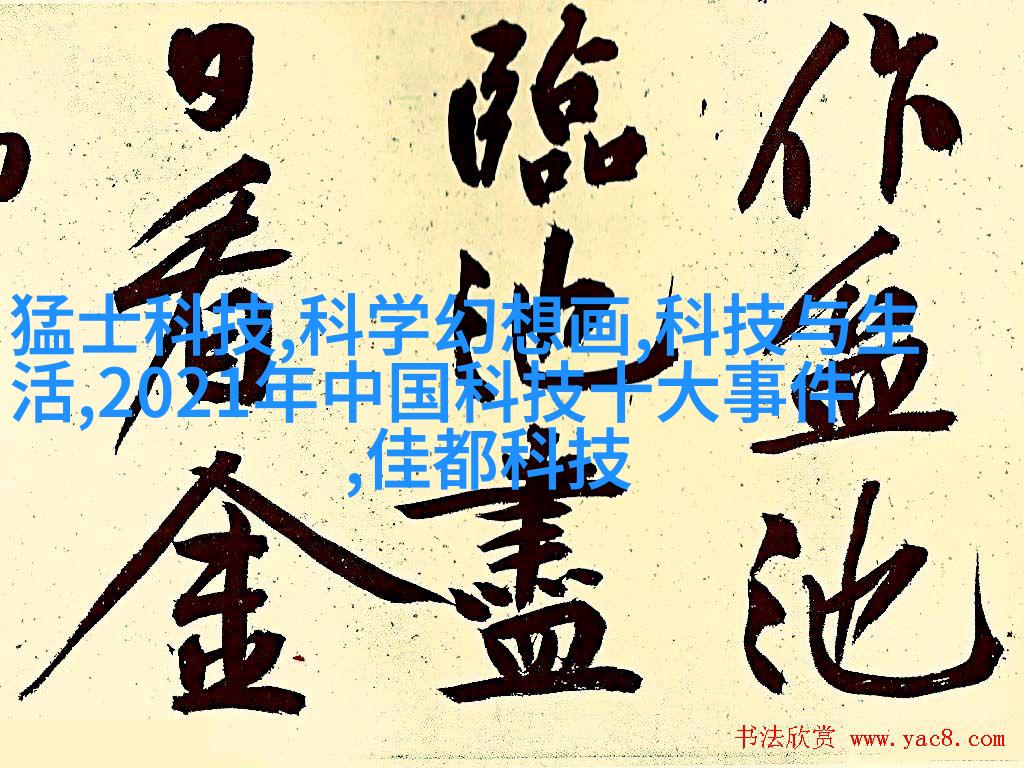 作盆池
臨池盡
日看金
猛士科技,科学幻想画,科技与生
活,2021年中国科技十大事件
,佳都科技
书法欣赏 www.yac8.com